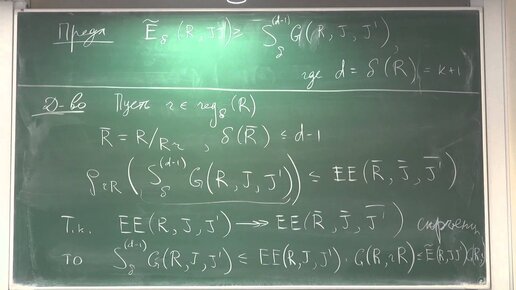 Предл Ẽ_δ(R, J, J') ≥ S_δ^{(d-1)} G(R, J, J'),
где d = δ(R) = k+1
Д-во Пусть r ∈ reg_δ(R)
R̄ = R/Rr , δ(R̄) ≤ d-1
ρ_{rR}(S_δ^{(d-1)} G(R, J, J')) ≤ EE(R̄, J̄, J̄')
Т.к. EE(R, J, J') ↠ EE(R̄, J̄, J̄') сюръекц
то S_δ^{(d-1)} G(R, J, J') ≤ EE(R, J, J') · G(R, rR) ≤ Ẽ(R, J, J')